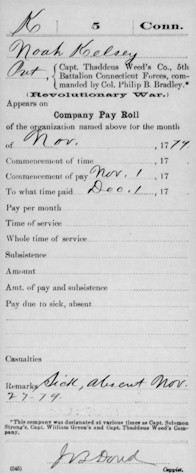 K 5 Conn.
Noah Kelsey
Pvt, Capt. Thaddeus Weed's Co., 5th
Battalion Connecticut Forces, com-
manded by Col. Philip B. Bradley.*
(Revolutionary War.)
Appears on
Company Pay Roll
of the organization named above for the month
of Nov., 1779.
Commencement of time , 17
Commencement of pay Nov. 1 , 17
To what time paid Dec. 1 , 17
Pay per month
Time of service
Whole time of service
Subsistence
Amount
Amt. of pay and subsistence
Pay due to sick, absent
Casualties
Remarks Sick, absent Nov.
27-79.
*This company was designated at various times as Capt. Solomon
Strong's, Capt. William Green's and Capt. Thaddeus Weed's Com-
pany.
(545) Copyist.